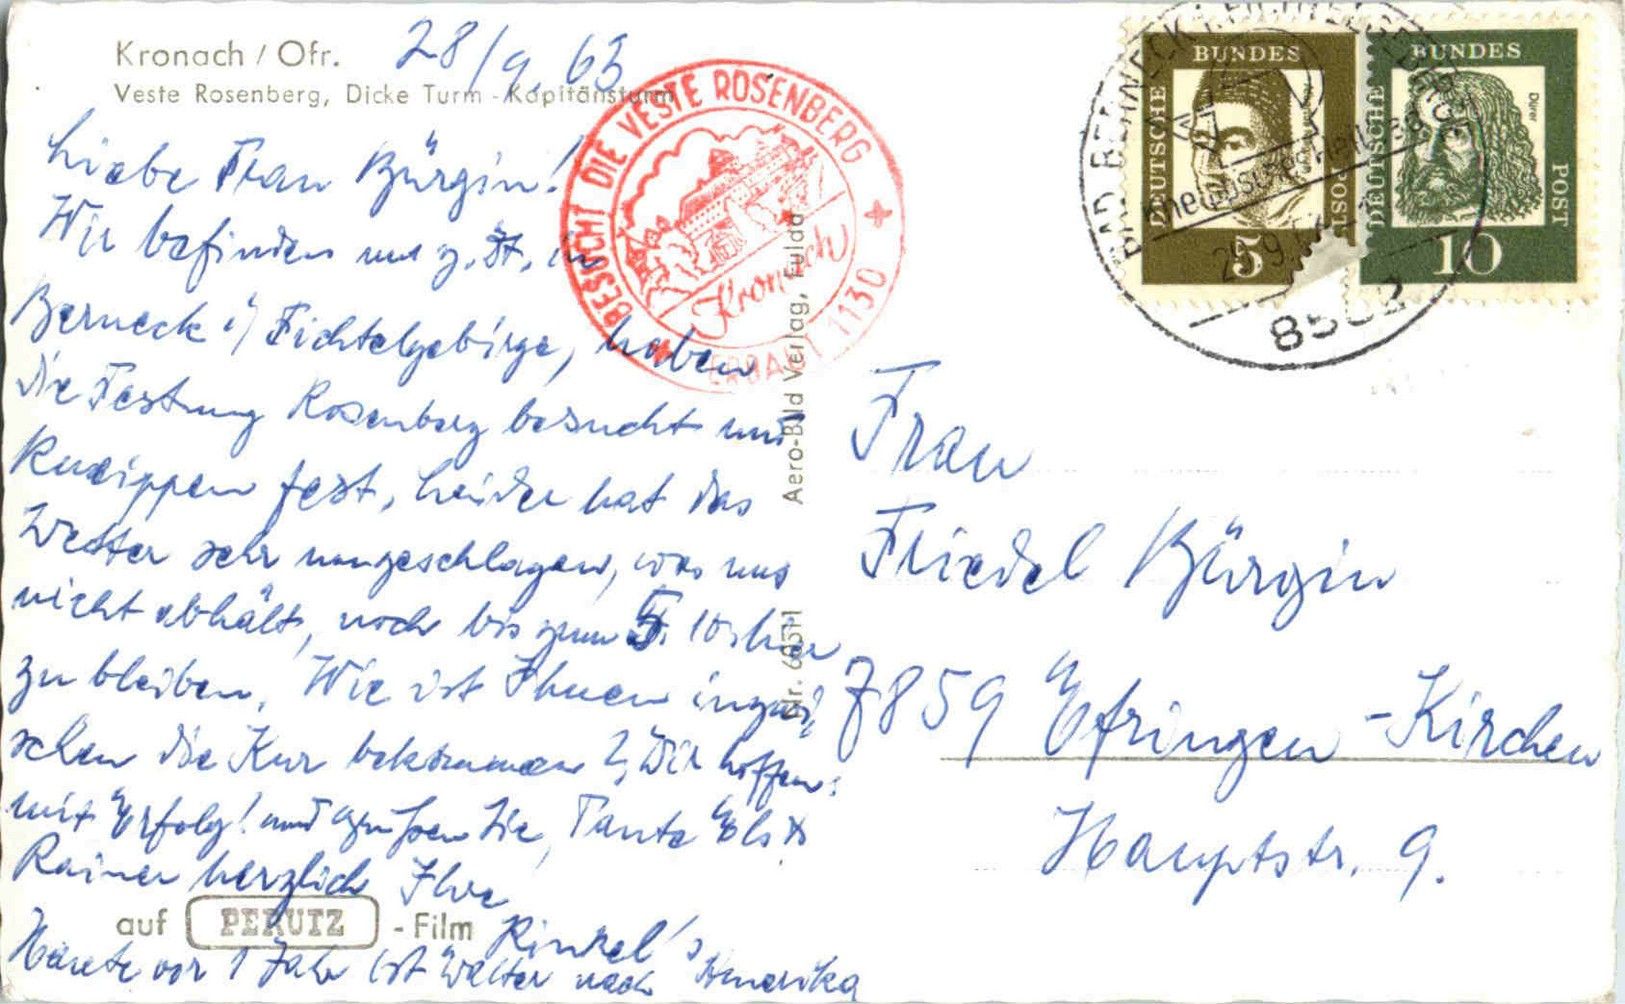 Kronach / Ofr.
28/9. 63
Veste Rosenberg, Dicke Turm - Kapitänsturm
Liebe Frau Bürgin!
Wir befinden uns z. Zt. in
Berneck i/ Fichtelgebirge, haben
die Festung Rosenberg besucht und
kneippen fest, leider hat das
Wetter sehr umgeschlagen, was uns
nicht abhält, noch bis zum 5. 10. hier
zu bleiben. Wie ist Ihnen inzwi-
schen die Kur bekommen? Wir hoffen:
mit Erfolg! und grüßen Sie, Tante Els &
Rainer herzlich Ihre
Rinkel's
Heute vor 1 Jahr ist Walter nach Amerika
auf PERUTZ - Film
BESUCHT DIE VESTE ROSENBERG
Kronach
ERBAUT 1130
Aero-Bild Verlag, Fulda
BUNDES
DEUTSCHE
POST
5
BUNDES
DEUTSCHE
POST
Dürer
10
BAD BERNECK I. FICHTELGEBIRGE
8582
Frau
Friedel Bürgin
7859 Efringen-Kirchen
Hauptstr. 9.